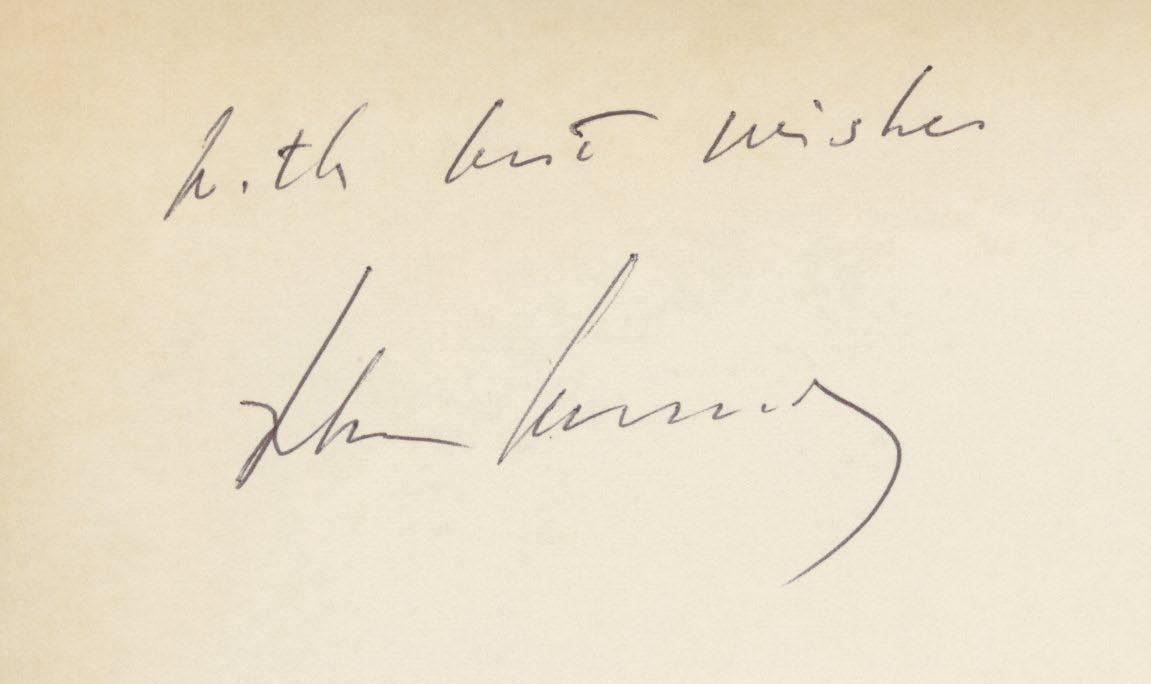 with best wishes
John